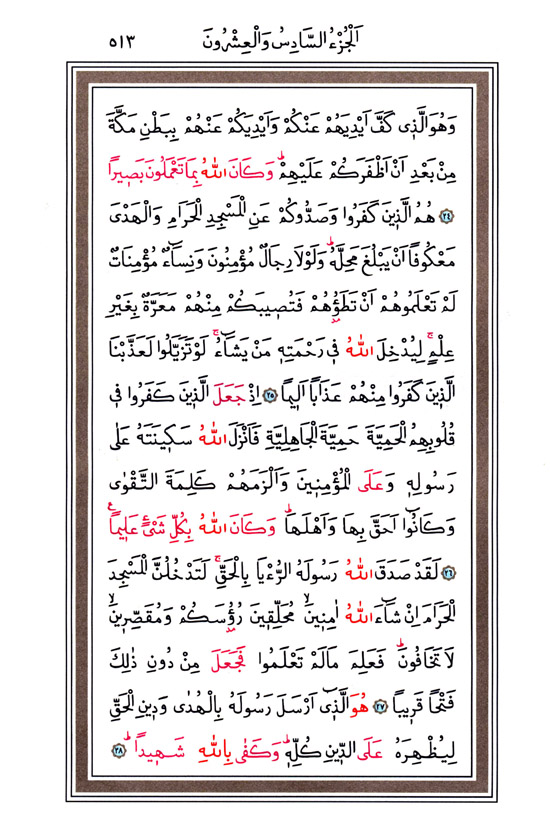 اَلْجُزْءُ السَّادِسُ وَالْعِشْرُونَ ٥١٣
وَهُوَ الَّذ۪ي كَفَّ اَيْدِيَهُمْ عَنْكُمْ وَاَيْدِيَكُمْ عَنْهُمْ بِبَطْنِ مَكَّةَ
مِنْ بَعْدِ اَنْ اَظْفَرَكُمْ عَلَيْهِمْۜ وَكَانَ اللّٰهُ بِمَا تَعْمَلُونَ بَص۪يراً
﴿٢٤﴾ هُمُ الَّذ۪ينَ كَفَرُوا وَصَدُّوكُمْ عَنِ الْمَسْجِدِ الْحَرَامِ وَالْهَدْيَ
مَعْكُوفاً اَنْ يَبْلُغَ مَحِلَّهُۜ وَلَوْلَا رِجَالٌ مُؤْمِنُونَ وَنِسَٓاءٌ مُؤْمِنَاتٌ
لَمْ تَعْلَمُوهُمْ اَنْ تَطَؤُ۫هُمْ فَتُص۪يبَكُمْ مِنْهُمْ مَعَرَّةٌ بِغَيْرِ
عِلْمٍۚ لِيُدْخِلَ اللّٰهُ ف۪ي رَحْمَتِه۪ مَنْ يَشَٓاءُۚ لَوْ تَزَيَّلُوا لَعَذَّبْنَا
الَّذ۪ينَ كَفَرُوا مِنْهُمْ عَذَاباً اَل۪يماً ﴿٢٥﴾ اِذْ جَعَلَ الَّذ۪ينَ كَفَرُوا ف۪ي
قُلُوبِهِمُ الْحَمِيَّةَ حَمِيَّةَ الْجَاهِلِيَّةِ فَاَنْزَلَ اللّٰهُ سَك۪ينَتَهُ عَلٰى
رَسُولِه۪ وَعَلَى الْمُؤْمِن۪ينَ وَاَلْزَمَهُمْ كَلِمَةَ التَّقْوٰى
وَكَانُٓوا اَحَقَّ بِهَا وَاَهْلَهَاۜ وَكَانَ اللّٰهُ بِكُلِّ شَيْءٍ عَل۪يماً۟
﴿٢٦﴾ لَقَدْ صَدَقَ اللّٰهُ رَسُولَهُ الرُّءْيَا بِالْحَقِّۚ لَتَدْخُلُنَّ الْمَسْجِدَ
الْحَرَامَ اِنْ شَٓاءَ اللّٰهُ اٰمِن۪ينَۙ مُحَلِّق۪ينَ رُؤُ۫سَكُمْ وَمُقَصِّر۪ينَۙ
لَا تَخَافُونَۜ فَعَلِمَ مَا لَمْ تَعْلَمُوا فَجَعَلَ مِنْ دُونِ ذٰلِكَ
فَتْحاً قَر۪يباً ﴿٢٧﴾ هُوَ الَّذ۪ٓي اَرْسَلَ رَسُولَهُ بِالْهُدٰى وَد۪ينِ الْحَقِّ
لِيُظْهِرَهُ عَلَى الدّ۪ينِ كُلِّه۪ۜ وَكَفٰى بِاللّٰهِ شَه۪يداًۜ ﴿٢٨﴾